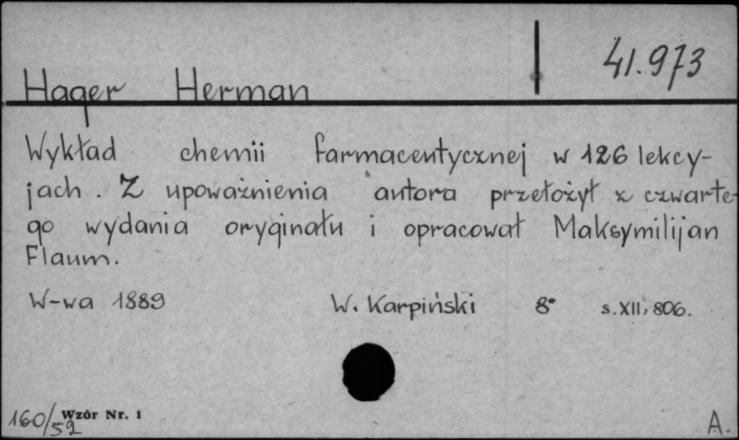 41.973
Hager Herman
Wykład chemii farmaceutycznej w 126 lekcy-
jach. Z upoważnienia autora przełożył z czwarte-
go wydania oryginału i opracował Maksymilijan
Flaum.
W-wa 1889 W. Karpiński 8° s. XII, 806.
160/52 Wzór Nr. 1 A.